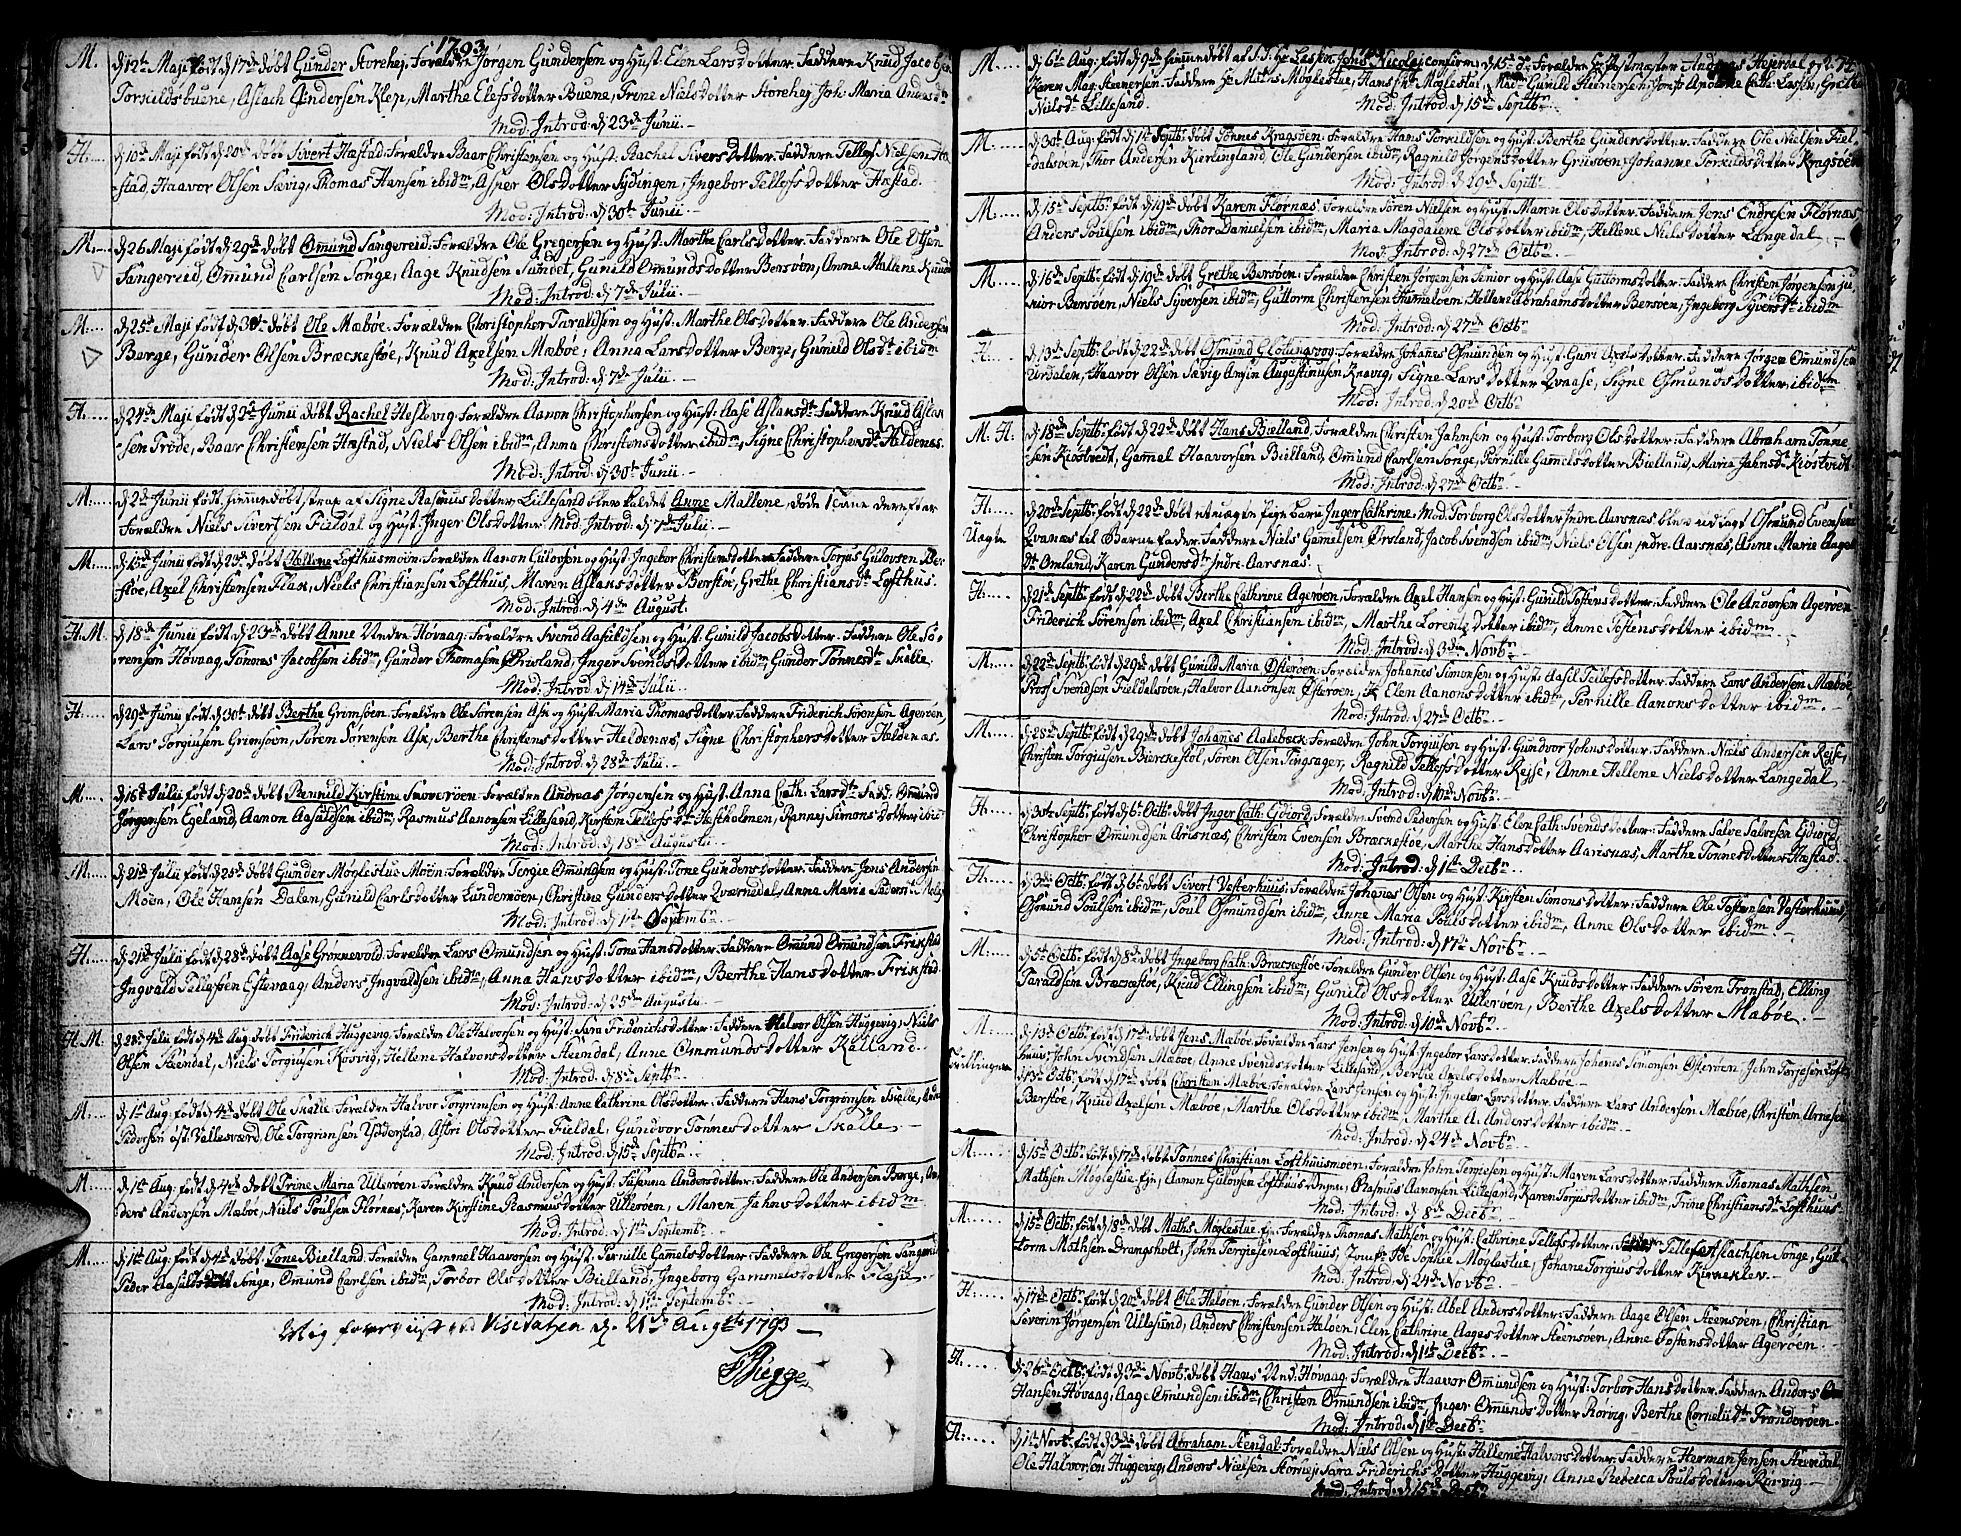 1793
M. d. 12te Maji født d. 17de døbt Gunder Storehej. Forældre Jørgen Gundersen og Hust: Elen Larsdotter. Faddere Knud Jacobsen
Torkildsbuene, Aslach Gundersen Klep, Marthe Elefsdotter Buene, Trine Nielsdotter Storehej, Joh: Maria Andersdr
Mod: Introd: d. 23de Junii.
H. d. 10de Maji født d. 20de døbt Sivert Hæstad. Forældre Baar Christensen og Hust: Rachel Siversdotter. Faddere Tellefs Nielsen Hæ
stad, Haavor Olsen Sævig, Thomas Hansen ibidm, Asper Olsdotter Sydingen, Ingebor Tellefsdotter Hæstad.
Mod: Introd: d. 30te Junii.
M. d. 26 Maji født d. 29de døbt Omund Sangereid. Forældre Ole Gregersen og Hust: Marthe Carlsdotter. Faddere Ole Olsen
Sangereid, Omund Carlsen Songe, Aage Knudsen Sundet, Gunild Omundsdotter Bersøen, Anne Mallene Knuds
Mod: Introd: d. 7de Julii.
M. d. 25de Maji født d. 30te døbt Ole Mæbøe. Forældre Christopher Taraldsen og Hust: Marthe Olsdotter. Faddere Ole Andersen
Berge, Gunder Olsen Bræckestøe, Knud Axelsen Mæbøe, Anna Larsdotter Berge, Gunild Olsdr ibidm
Mod: Introd: d. 7de Julii.
H. d. 24de Maji født d. 2de Junii døbt Rachel Heslevig. Forældre Aanon Christophersen og Hust: Aase Aslaksdr. Faddere Knud Aslak
sen Trøde, Baar Christensen Hæstad, Niels Olsen ibidm, Anna Christensdotter ibidm, Signe Christophersdr Heldenæs.
Mod: Introd: d. 30te Junii.
M. d. 2de Junii født hiemmedøbt strax af Signe Rasmusdotter Lillesand blev kaldet Anne Mallene, døde 1 Time derefter
Forældre Niels Sivertsen Fieldal og Hust: Inger Olsdotter. Mod: Introd: d. 7de Julii.
M. d. 15de Junii født d. 23de døbt Hellene Lofthusmoen. Forældre Aanon Gulovsen og Hust: Ingebor Christensdotter. Faddere Torjus Gulovsen Ber
støe, Axel Christensen Flax, Niels Christiansen Lofthus, Maren Aslaksdotter Berstøe, Grethe Christiansdr Lofthus.
Mod: Introd: d. 4de August.
H. M. d. 18de Junii født d. 23de døbt Anne Vndre Høvaag. Forældre Svend Aasildsen og Hust: Gunild Jacobsdotter. Faddere Ole Sø-
rensen Høvaag, Tønnes Jacobsen ibidm, Gunder Thomasen Ørisland, Inger Svendsdotter ibidm, Gunder Tønnesdr Skalle.
Mod: Introd: d. 14de Julii.
H. d. 29de Junii født d. 30te døbt Berthe Grimsøen. Forældre Ole Sørensen Ask og Hust: Maria Thomasdotter. Faddere Friderich Sørensen Agerøen,
Lars Torgiusen Grimsøen, Søren Sørensen Ask, Berthe Christensdotter Heldenæs, Signe Christophersdotter Heldenæs.
Mod: Introd: d. 28de Julii.
M. d. 16de Julii født d. 20de døbt Rennild Kirstine Skoverøen. Forældre Andreas Jørgensen og Hust: Anna Cath: Larsdr. Fadd: Omund
Jørgensen Egeland, Aanon Aasuldsen ibidm, Rasmus Aanonsen Lillesand, Kirsten Tellefsdr Hestholmen, Rannej Simonsdotter ibid
Mod: Introd: d. 18de Augusti.
M. d. 21de Julii født d. 25de døbt Gunder Møglestue Moen. Forældre Tergie Omundsen og Hust: Tone Gundersdotter. Faddere Jens Andersen
Moen, Ole Hansen Dalen, Gunild Carlsdotter Lundemoen, Christine Gundersdotter Qværndal, Anna Maria Pedersdr
Mod: Introd: d. 1te Septembr.
H. d. 21de Julii født d. 28de døbt Aase Grønnevold. Forældre Lars Omundsen og Hust: Tone Hansdotter. Faddere Omund Omundsen Frikstad
Ingvald Tellefsen Estevaag, Anders Ingvaldsen ibidm, Anna Hansdotter ibidm, Berthe Hansdotter Frikstad.
Mod: Introd: d. 25de Augusti.
H. M. d. 28de Julii født d. 4de Aug: døbt Friderich Huggevig. Forældre Ole Halvorsen og Hust: Sara Friderichsdotter. Faddere Halvor Olsen Huggevig, Niels
Olsen Steendal, Niels Torgiusen Kosvig, Hellene Halvorsdotter Steendal, Anne Ommundsdotter Kalland.
Mod: Introd: d. 8de Septbr.
M. d. 1te Aug: født d. 4de døbt Ole Skalle. Forældre Halvor Torgrimsen og Hust: Anne Cathrine Olsdotter. Faddere Hans Torgrimsen Skalle,
Pedersen øst: Vallesværd, Ole Torgrimsen Ydderstad, Astri Olsdotter Fieldal, Gundvor Tønnesdotter Skalle.
Mod: Introd: d. 15de Septbr.
M. d. 1te Aug: født d. 4de døbt Trine Maria Ullerøen. Forældre Knud Andersen og Hust: Susanna Andersdotter. Faddere Ole Andersen Berge, An-
ders Andersen Mæbøe, Niels Poulsen Flørnæs, Karen Kirstine Rasmusdotter Ullerøen, Maren Jahnsdotter ibidm.
Mod: Introd: d. 1te Septembr.
M. d. 1te Aug: født d. 4de døbt Tone Bielland. Forældre Gammel Haavorsen og Hust: Pernille Gamelsdotter. Faddere Ole Gregersen Sangereid
Peder Aasulds Songe, Omund Carlsen ibidm, Torbor Olsdotter Bielland, Ingeborg Gammelsdotter
Mod: Introd: d. 1te Septembr.
Mig foreviist ved Visitatzen d. 21de Augusti 1793
Hegge
M. d. 6te Aug: født d. 9de hiemmedøbt Jens Nicolai, confirm: d. 15de. Forældre Andreas Hejerdal og
Karen Mag: Steenersen. Faddere Mathis Møglestue, Hans Chr: Møglestue, Gunild Steenersen, Jomfr Apolone Cath: Lassen, Grethe
Nielsdr Lillesand. Mod: Introd: d. 15de Septbr.
M. d. 30te Aug: født d. 1te Septbr: døbt Tønnes Kragsøen. Forældre Hans Torkildsen og Hust: Berthe Gundersdotter. Faddere Ole Nielsen Fiel-
dalsøen, Thor Andersen Kierlingland, Ole Gundersen ibidm, Ragnild Jørgensdotter Gruesøen, Johanne Torkildsdotter Kragsøen
Mod: Introd: d. 29de Septbr.
M. d. 15de Septbr: født d. 19de døbt Karen Flørnæs. Forældre Søren Nielsen og Hust: Maren Olsdotter. Faddere Jens Endresen Flørnæs
Anders Poulsen ibidm, Thor Danielsen ibidm, Maria Magdalene Olsdotter ibidm, Hellene Nielsdotter Langedal.
Mod: Introd: d. 27de Octbr.
M. d. 16de Septbr: født d. 19de døbt Grethe Bersøen. Forældre Christen Jørgensen Senior og Hust: Aase Guttormsdotter. Faddere Christen Jørgensen ju
nior Bersøen, Niels Syversen ibidm, Guttorm Christensen Humlesøen, Hellene Abrahamsdotter Bersøen, Ingeborg Syversdr ibidm
Mod: Introd: d. 27de Octbr.
H. d. 13de Septbr: født d. 22de døbt Osmund Glotingsvog. Forældre Johanes Osmundsen og Hust: Guri Axelsdotter. Faddere Jørgen Omundsen
Urdalen, Haavor Olsen Sævig, Ansin Augustinusen Knavig, Signe Larsdotter Qvaase, Signe Osmundsdotter ibidm
Mod: Introd: d. 20de Octbr
M. H. d. 18de Septbr: født d. 22de døbt Hans Bielland. Forældre Christen Jahnsen og Hust: Torborg Olsdotter. Faddere Abraham Tønne
sen Kiøstvedt, Gammel Haavorsen Bielland, Omund Carlsen Songe, Pernille Gammelsdotter Bielland, Maria Jahnsdr Kiøstvedt
Mod: Introd: d. 27de Octbr.
H. Uægte d. 20de Septbr: født d. 22de døbt et uægte Pige Barn Inger Cathrine. Mod: Torborg Olsdotter Indre Aarsnæs blev udlagt Osmund Evensen
Qvanæs til Barnefader. Faddere Niels Gamelsen Ørsland, Jacob Svendsen ibidm, Niels Olsen indre Aarsnæs, Anne Marie Aages
dr Omland, Karen Gundersdr Indre Aarsnæs.
H. d. 21de Septbr: født d. 22de døbt Berthe Cathrine Agerøen. Forældre Axel Hansen og Hust: Gunild Tostensdotter. Faddere Ole Andersen Agerøen
Friderich Sørensen ibidm, Axel Christiansen ibidm, Marthe Lorentzdotter ibidm, Anne Tostensdotter ibidm.
Mod: Introd: d. 3de Novbr.
M. d. 22de Septbr: født d. 29de døbt Gunild Maria Østerøen. Forældre Johanes Simonsen og Hust: Aasil Tellefsdotter. Faddere Lars Andersen Mæbøe
Svendsen Fieldelsøen, Halvor Aanonsen Østerøen, Elen Aanonsdotter ibidm, Pernille Aanonsdotter ibidm.
Mod: Introd: d. 27de Octbr.
M. d. 28de Septbr: født d. 29de døbt Johanes Aalebæck. Forældre John Torgiusen og Hust: Gundvor Johnsdotter. Faddere Niels Andersen Rejse,
Christen Torgiusen Bierckestøl, Søren Olsen Tingsager, Ragnild Tellefsdotter Rejse, Anne Hellene Nielsdotter Langedal
Mod: Introd: d. 10de Novbr.
H. d. 30te Septbr: født d. 6te Octbr: døbt Inger Cath: Eidiord. Forældre Svend Pedersen og Hust: Elen Cath: Svendsdotter. Faddere Salve Salvesen Eidiord,
Christopher Omundsen Arisnæs, Christen Evensen Bræckestøe, Marthe Hansdotter Aarisnæs, Marthe Tønnesdotter Hæstad.
Mod: Introd: d. 1te Decbr.
H. d. 3de Octbr: født d. 6te døbt Sivert Vesterhuus. Forældre Johanes Olsen og Hust: Kirsten Simonsdotter. Faddere Ole Tostensen Vesterhuus,
Osmund Poulsen ibidm, Poul Osmundsen ibidm, Anne Maria Poulsdotter ibidm, Anne Olsdotter ibidm.
Mod: Introd: d. 17de Novbr.
M. d. 5te Octbr: født d. 8de døbt Ingeborg Cath: Bræckestøe. Forældre Gunder Olsen og Hust: Aase Knudsdotter. Faddere Søren Tronstad, Elling
Taraldsen Bræckestøe, Knud Ellingsen ibidm, Gunild Olsdotter Ullerøen, Berthe Axelsdotter Mæbøe.
Mod: Introd: d. 10de Novbr.
M. Tvillinger d. 13de Octbr: født d. 17de døbt Jens Mæbøe. Forældre Lars Jensen og Hust: Ingebor Larsdotter. Faddere Johanes Simonsen Østerøen, John Torjesen Loft-
huus, John Svendsen Mæbøe, Anne Svendsdotter Lillesand, Berthe Axelsdotter Mæbøe.
d. 13de Octbr: født d. 17de døbt Christen Mæbøe. Forældre Lars Jensen og Hust: Ingebor Larsdotter. Faddere Lars Andersen Mæbøe, Christen Arnesen
Berstøe, Knud Axelsen Mæbøe, Marthe Olsdotter ibidm, Marthe A. Andersdotter ibidm.
Mod: Introd: d. 24de Novbr.
M. d. 15de Octbr: født d. 17de døbt Tønnes Christian Lofthuusmoen. Forældre John Terjesen og Hust: Maren Larsdotter. Faddere Thomas Mathsen
Mathsen Møglestue, Aanon Gulovsen Lofthuus, Rasmus Aanonsen Lillesand, Karen Torjusdotter ibidm, Trine Christiansdr Lofthuus.
Mod: Introd: d. 8de Decbr.
M. d. 15de Octbr: født d. 18de døbt Maths Møglestue. Forældre Thomas Mathsen og Hust: Cathrine Tellefsdotter. Tellef Aslachsen Songe, Gut-
torm Mathsen Drangsholt, John Tergiesen Lofthuus, Jomfr Sophie Møglestue, Johane Torgiusdotter Kirreklev.
Mod: Introd: d. 24de Novbr.
H. d. 17de Octbr: født d. 20de døbt Ole Heløen. Forældre Gunder Olsen og Hust: Abel Andersdotter. Faddere Aage Olsen Steensøen, Christian
Severin Jørgensen Ullesund, Anders Christensen Heløen, Elen Cathrine Aagesdotter Steensøen, Anne Tostensdotter Agerøen.
Mod: Introd: d. 1te Decbr.
H. d. 26de Octbr: født d. 3de Novbr: døbt Hans Vnd: Høvaag. Forældre Haavor Omundsen og Hust: Torbor Hansdotter. Faddere Anders
Hansen Høvaag, Aage Omundsen ibidm, Christen Omundsen ibidm, Inger Omundsdotter Rørvig, Berthe Cornelidr Trønderøen.
Mod: Introd: d. 1te Decbr.
H. d. 1te Novbr: født d. 3de døbt Abraham Steendal. Forældre Niels Olsen og Hust: Hellene Halvorsdotter. Faddere Herman Jensen Steendal
Ole Halvorsen Huggevig, Anders Nielsen Storhej, Sara Friderichsdotter Huggevig, Anne Rebecca Poulsdotter Rørvig.
Mod: Introd: d. 15de Decbr